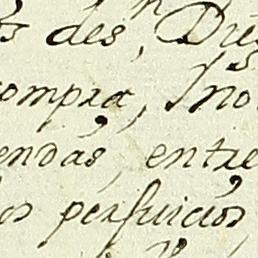 des, Die
compra, Ino
endas, entre
os perſuicios,